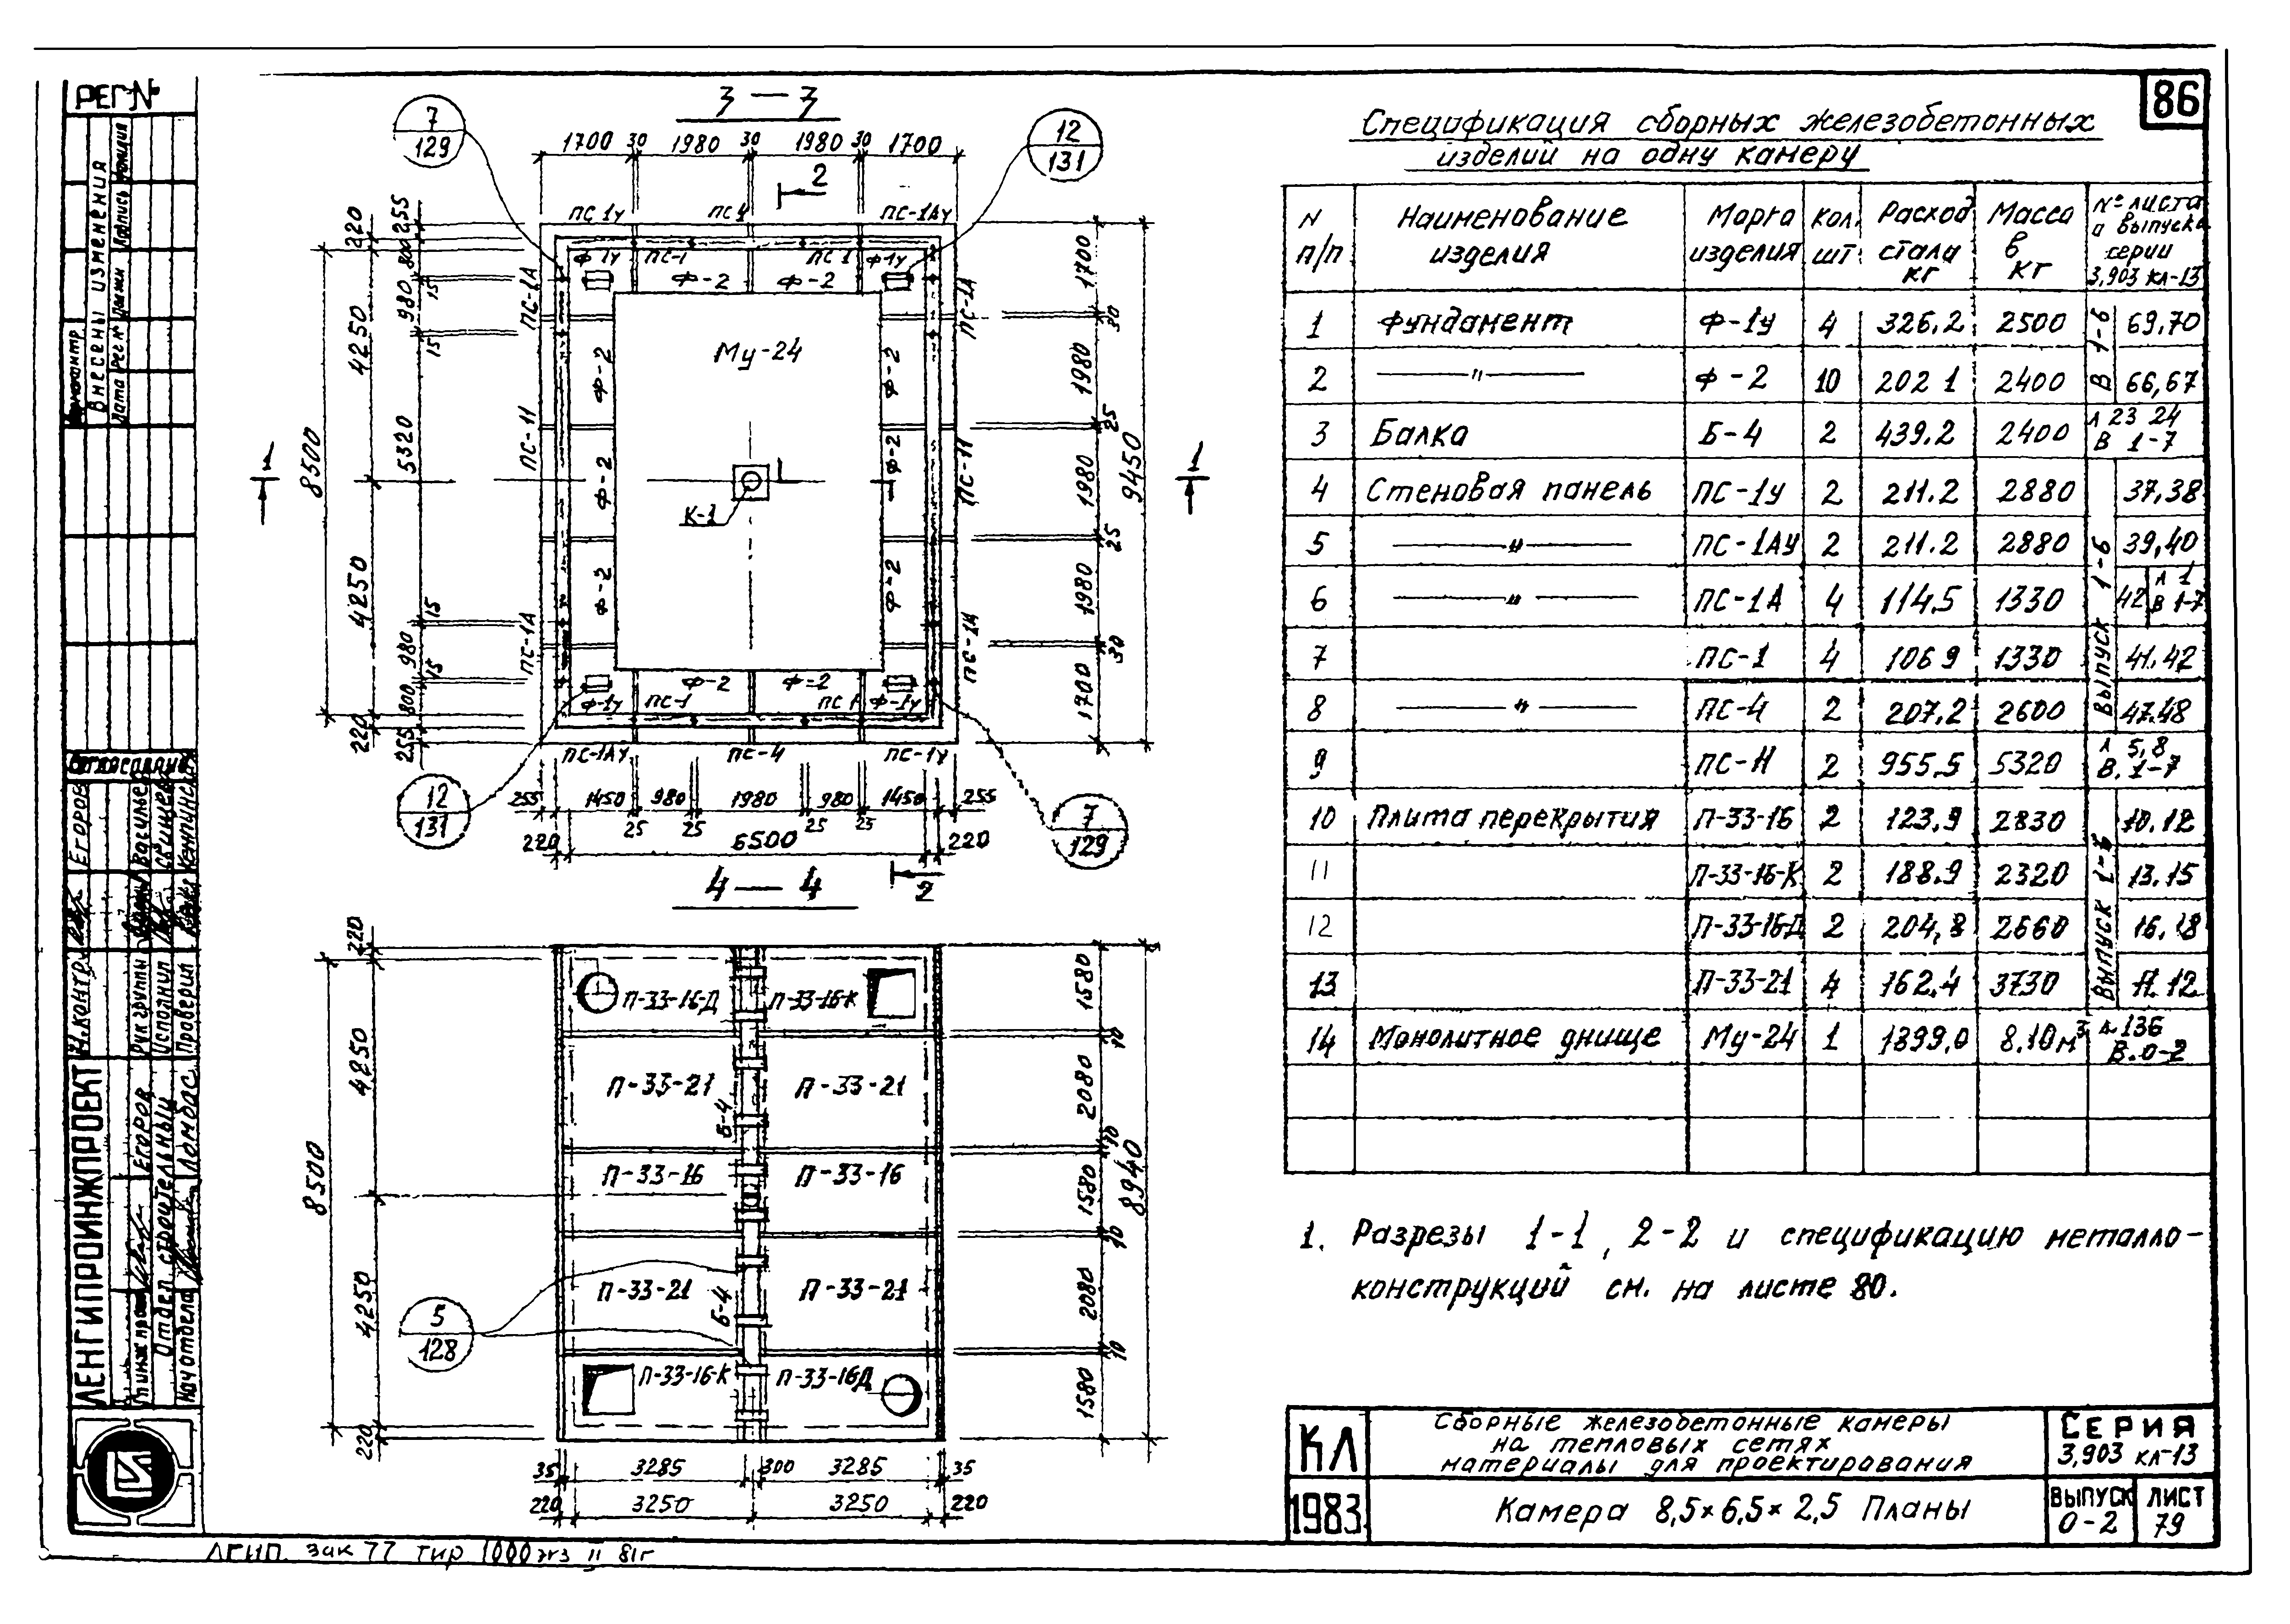 РЕГ №
86
3 — 3
7
129
12
131
1700 30 1980 30 1980 30 1700
2
ПС 1у ПС 4 ПС-1Ау
Ф-1у ПС-1 ПС 1 Ф-1у
Ф-2 Ф-2
ПС-1А
ПС-1А
Му-24
Ф-2
Ф-2
ПС-11
ПС-11
Ф-2
Ф-2
К-1
Ф-2
Ф-2
ПС-1А
ПС-1А
Ф-2 Ф-2
Ф-1у ПС-1 ПС 1 Ф-1у
ПС-1Ау ПС-4 ПС-1у
1
1
220
255
800
980
15
15
4250
5320
8500
4250
15
980
15
800
220
255
1700
30
1980
25
1980
25
1980
30
1700
9450
12
131
7
129
255 1450 980 1980 980 1450 255
25 25 25 25
220 6500 220
2
4 — 4
220
4250
8500
4250
220
П-33-16-Д П-33-16-К
П-33-21 П-33-21
Б-4
П-33-16 П-33-16
П-33-21 П-33-21
Б-4
П-33-16-К П-33-16Д
5
128
1580
10
2080
10
1580
10
2080
10
1580
8940
35 3285 300 3285 35
220 3250 3250 220
Спецификация сборных железобетонных
изделий на одну камеру
N п/п Наименование изделия Марка изделия Кол. шт. Расход стали кг Масса в кг № листа и выпуска серии 3,903 КЛ-13
1 Фундамент Ф-1у 4 326.2 2500 В 1-6 69,70
2 —〃— Ф-2 10 202 1 2400 66,67
3 Балка Б-4 2 439.2 2400 Л 23 24 В 1-7
4 Стеновая панель ПС-1у 2 211.2 2880 Выпуск 1-6 37.38
5 —〃— ПС-1Ау 2 211.2 2880 39,40
6 —〃— ПС-1А 4 114.5 1330 42 Л 1 В 1-7
7 ПС-1 4 106 9 1330 41.42
8 —〃— ПС-4 2 207.2 2600 47.48
9 ПС-11 2 955.5 5320 Л 5,8 В. 1-7
10 Плита перекрытия П-33-16 2 123.9 2830 Выпуск 1-6 10.12
11 П-33-16-К 2 188.9 2320 13.15
12 П-33-16-Д 2 204,8 2660 16.18
13 П-33-21 4 162.4 3730 11.12
14 Монолитное днище Му-24 1 1899,0 8.10 м³ Л.136 В.0-2
1. Разрезы 1-1, 2-2 и спецификацию металло-
конструкций см. на листе 80.
КЛ
1983.
Сборные железобетонные камеры
на тепловых сетях
материалы для проектирования
СЕРИЯ
3,903 КЛ-13
Камера 8,5×6,5×2,5 Планы
ВЫПУСК
0-2
ЛИСТ
79
Внесены изменения
Дата Рег № Должн Подпись Фамилия
Согласовано
Н.контр. Егоров
Рук группы
Исполнил
Проверил
ЛЕНГИПРОИНЖПРОЕКТ
Егоров
Отдел строительный
Нач отдела Ломбас
ЛГИП зак 77 тир 1000 экз II 81г